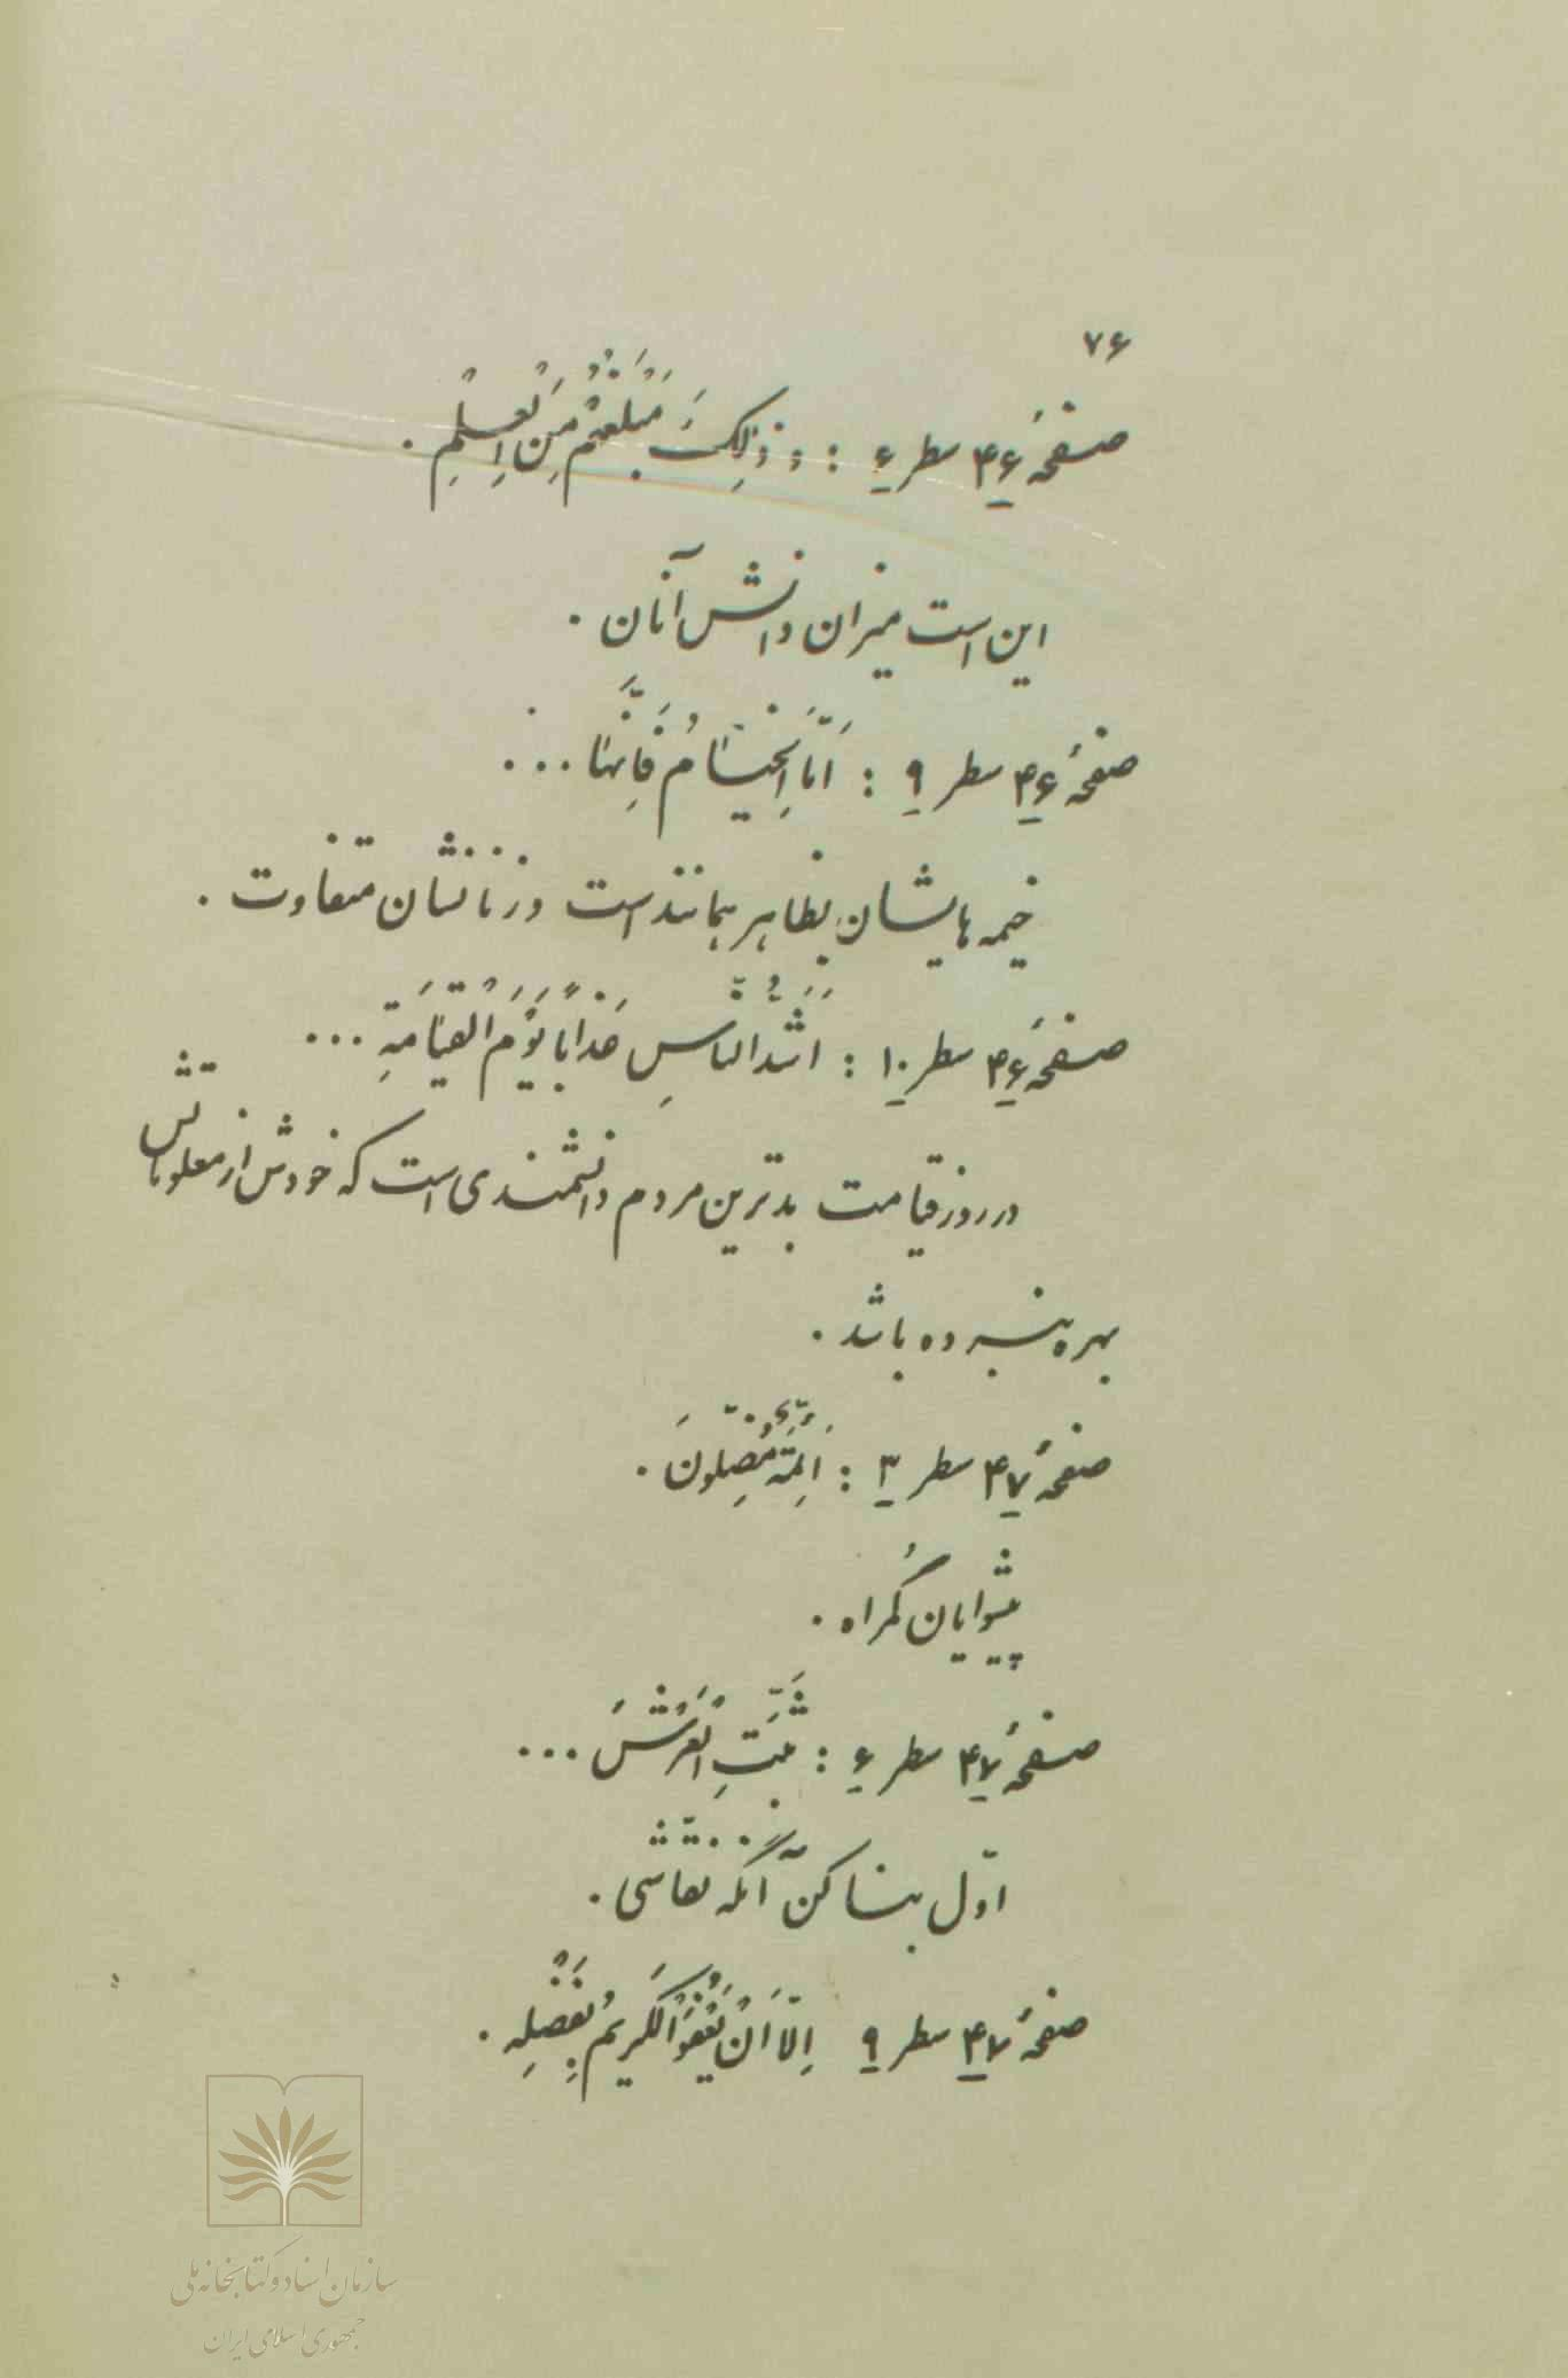 ۷۶
صفحهٔ ۴۶ سطر ۶ : وَ ذٰلِکَ مَبْلَغُهُمْ مِنَ الْعِلْمِ .
این است میزان دانش آنان .
صفحهٔ ۴۶ سطر ۹ : اَمَّا الْخِیٰامُ فَاِنَّهٰا ...
خیمه هایشان بظاهر همانند است و زنانشان متفاوت .
صفحهٔ ۴۶ سطر ۱۰ : اَشَدُّ النّٰاسِ عَذٰابًا یَوْمَ الْقِیٰامَةِ ...
در روز قیامت بدترین مردم دانشمندی است که خودش از معلوماتش
بهره نبرده باشد .
صفحهٔ ۴۷ سطر ۳ : اَئِمَّةٌ مُضِلّونَ .
پیشوایان گمراه .
صفحهٔ ۴۷ سطر ۶ : ثَبِّتِ الْعَرْشَ ...
اوّل بنا کن آنگه نقاشی .
صفحهٔ ۴۷ سطر ۹ اِلّا اَنْ یَعْفُوَ الْکَریمُ بِفَضْلِهِ .
سازمان اسناد و کتابخانه ملی
جمهوری اسلامی ایران